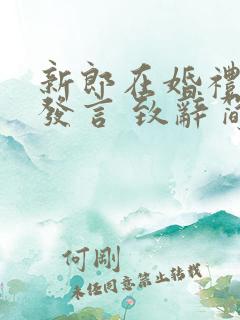 新郎在婚禮
發言致辭
何剛
未经同意禁止转载